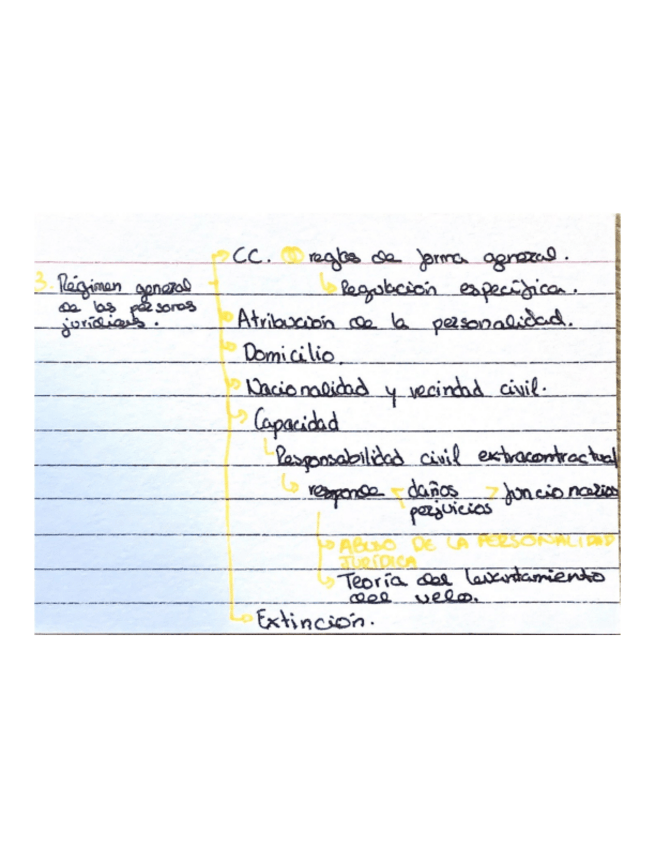 CC. reglas de forma general.
3. Régimen general
de las personas
jurídicas.
Regulación específica.
Atribución de la personalidad.
Domicilio.
Nacionalidad y vecindad civil.
Capacidad
Responsabilidad civil extracontractual
responde daños funcionarios
perjuicios
ABUSO DE LA PERSONALIDAD
JURÍDICA
Teoría del levantamiento
del velo.
Extinción.